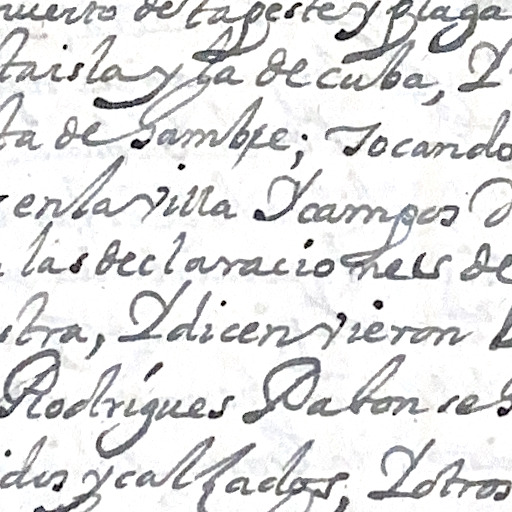 muerto de la peste y plaga
ta isla y la de cuba, Y
ta de hambre; Jocando
en la villa Y campos D
las declaraciones de
stra, Y dicen vieron
Rodrígues Pabon se
idos y calsados, Y otros